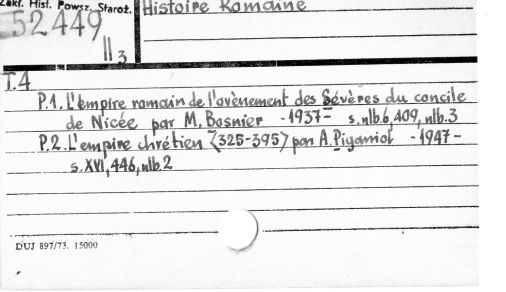 Zakł. Hist. Powsz. Staroż.
Histoire Romaine
52449
II 3
T.4
P.1. L'empire romain de l'avènement des Sévères du concile
de Nicée par M. Bosnier -1937- s. nlb.6, 409, nlb.3
P.2. L'empire chrétien (325-395) par A. Piganiol -1947-
s. XVI, 446, nlb.2
DUJ 897/73. 15000